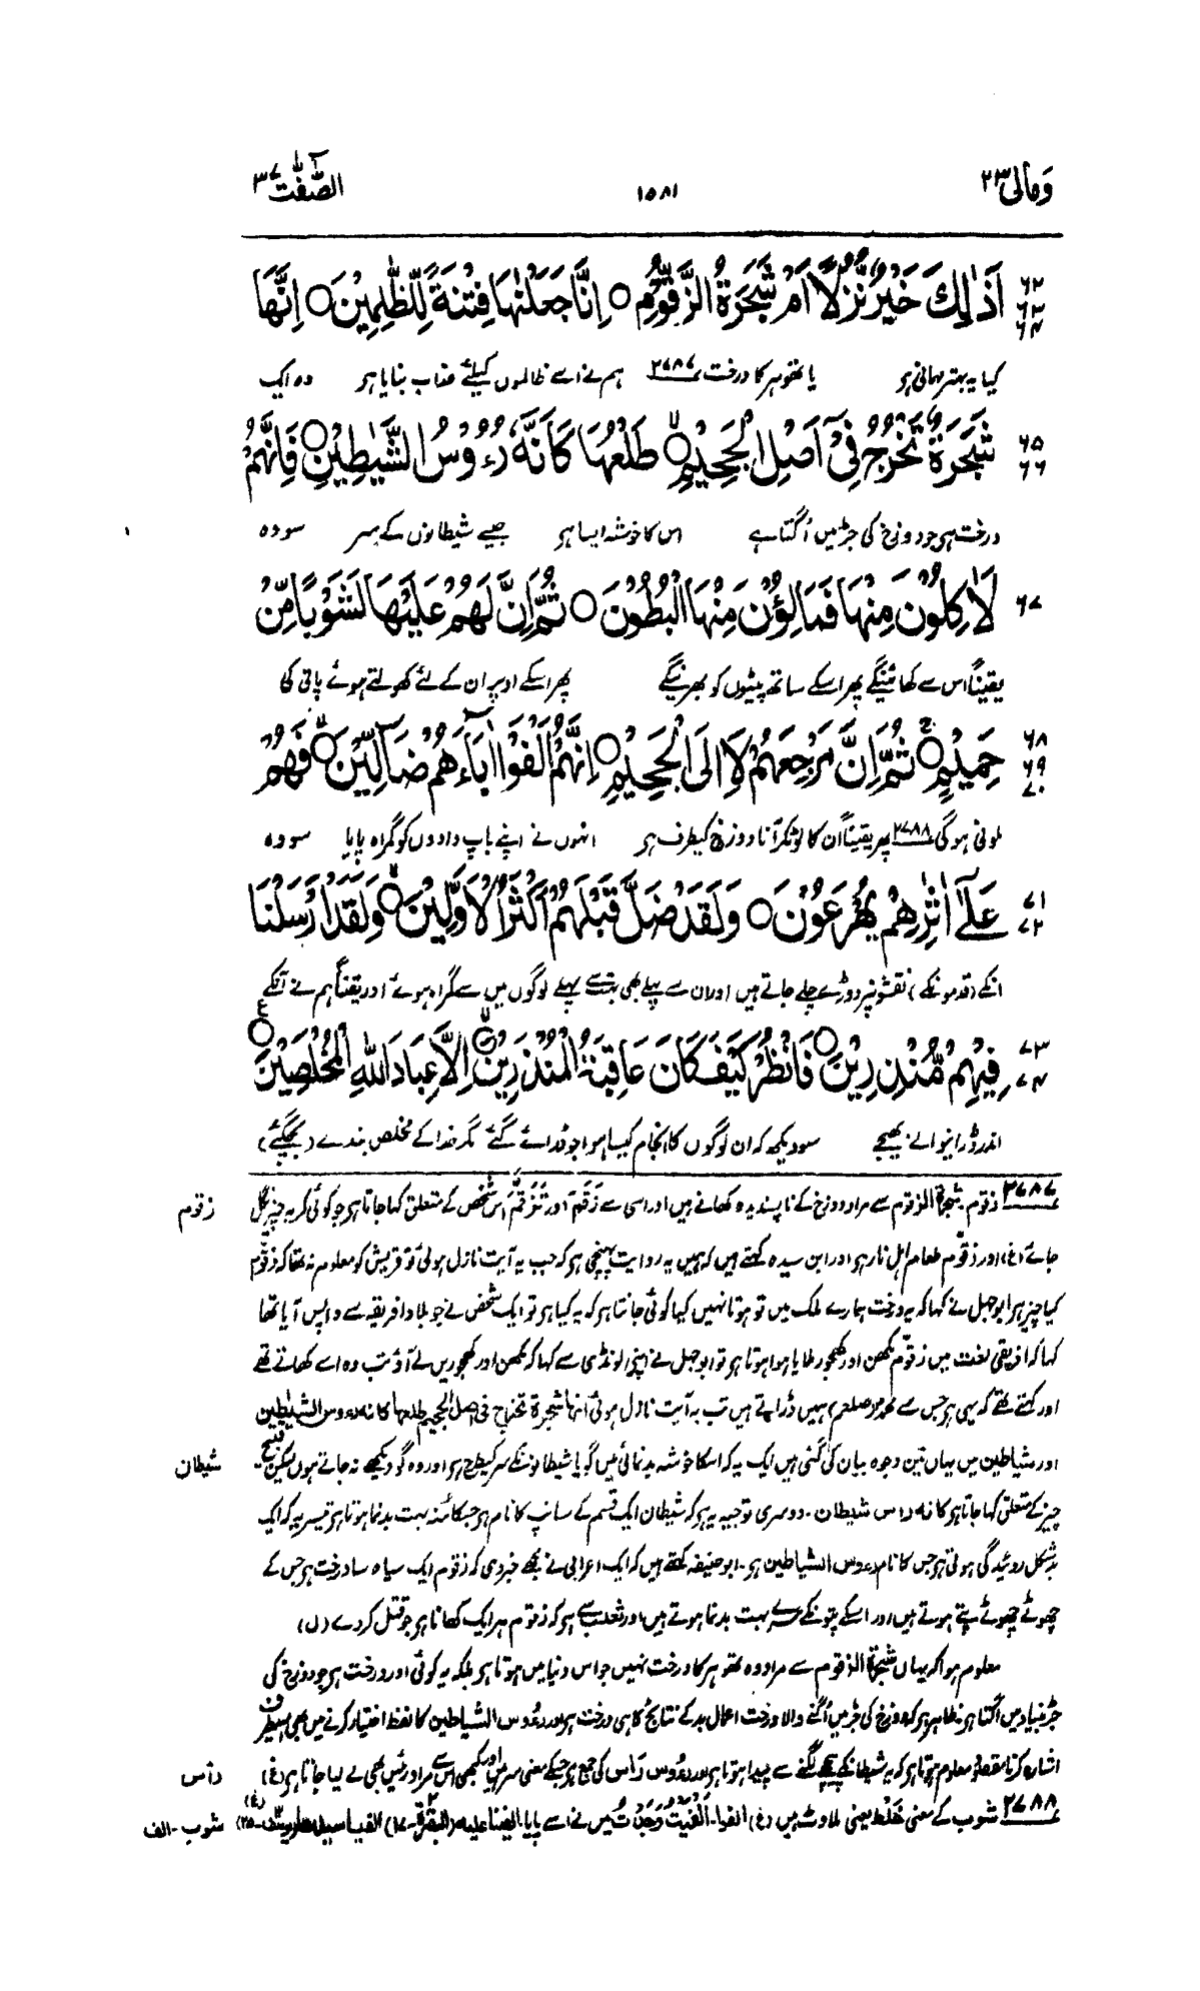 وَمَالِىَ ٢٣
١٥٨١
الصّٰفّٰت ٣٧
٦٢ ٦٣ ٦٤ اَذٰلِكَ خَيْرٌ نُّزُلًا اَمْ شَجَرَةُ الزَّقُّوْمِ ○ اِنَّا جَعَلْنٰهَا فِتْنَةً لِّلظّٰلِمِيْنَ ○ اِنَّهَا
کیا یہ بہتر مہمانی ہو یا تھوہر کا درخت ٢٧٨٧ ہم نے اسے ظالموں کیلئے عذاب بنایا ہو وہ ایک
٦٥ ٦٦ شَجَرَةٌ تَخْرُجُ فِىْٓ اَصْلِ الْجَحِيْمِ ○ طَلْعُهَا كَاَنَّهٗ رُءُوْسُ الشَّيٰطِيْنِ ○ فَاِنَّهُمْ
درخت ہی جو دوزخ کی جڑ میں اُگتا ہے اس کا خوشہ ایسا ہو جیسے شیطانوں کے سر سو وہ
٦٧ لَاٰكِلُوْنَ مِنْهَا فَمَالِـُٔوْنَ مِنْهَا الْبُطُوْنَ ○ ثُمَّ اِنَّ لَهُمْ عَلَيْهَا لَشَوْبًا مِّنْ
یقیناً اس سے کھائینگے پھر اسکے ساتھ پیٹوں کو بھرینگے پھر اسکے اوپر ان کے لئے کھولتے ہوئے پانی کی
٦٨ ٦٩ ٧٠ حَمِيْمٍ ○ ثُمَّ اِنَّ مَرْجِعَهُمْ لَا۟اِلَى الْجَحِيْمِ ○ اِنَّهُمْ اَلْفَوْا اٰبَآءَهُمْ ضَآلِّيْنَ ○ فَهُمْ
ملونی ہوگی ٢٧٨٨ پھر یقیناً ان کا لوٹکر آنا دوزخ کیطرف ہو انہوں نے اپنے باپ دادوں کو گمراہ پایا سو وہ
٧١ ٧٢ عَلٰٓى اٰثٰرِهِمْ يُهْرَعُوْنَ ○ وَلَقَدْ ضَلَّ قَبْلَهُمْ اَكْثَرُ الْاَوَّلِيْنَ ○ وَلَقَدْ اَرْسَلْنَا
انکے (قدمونکے) نقشونپر دوڑے چلے جاتے ہیں اور ان سے پہلے بھی بہتسے پہلے لوگوں میں سے گمراہ ہوئے اور یقیناً ہم نے انکے
٧٣ ٧٤ فِيْهِمْ مُّنْذِرِيْنَ ○ فَانْظُرْ كَيْفَ كَانَ عَاقِبَةُ الْمُنْذَرِيْنَ ○ اِلَّا عِبَادَ اللّٰهِ الْمُخْلَصِيْنَ ○
اندر ڈرانیوالے بھیجے سو دیکھ کہ ان لوگوں کا انجام کیسا ہوا جو ڈرائے گئے مگر خدا کے مخلص بندے (بچگئے)
٢٧٨٧ زقوم شجرۃ الزقوم سے مراد دوزخ کے ناپسندیدہ کھانے ہیں اور اسی سے زَقَمَ اور تَزَقَّمَ اس شخص کے متعلق کہا جاتا ہو جو کوئی کریہ چیز نگل زقوم
جائے (غ) اور زقّوم طعام اہل نار ہو اور ابن سیدہ کہتے ہیں کہ ہمیں یہ روایت پہنچی ہو کہ جب یہ آیت نازل ہوئی تو قریش کو معلوم نہ تھا کہ زقّوم
کیا چیز ہو ابو جہل نے کہا کہ یہ درخت ہمارے ملک میں تو ہوتا نہیں کیا کوئی جانتا ہو کہ یہ کیا ہو تو ایک شخص نے جو بلاد افریقہ سے واپس آیا تھا
کہا کہ افریقی لغت میں زقوم مکھن اور کھجور ملایا ہوا ہوتا ہو تو ابو جہل نے اپنی لونڈی سے کہا کہ مکھن اور کھجوریں لے آؤ تب وہ اسے کھاتے تھے
اور کہتے تھے کہ یہی ہو جس سے محمد (صلعم) ہمیں ڈراتے ہیں تب یہ آیت نازل ہوئی انہا شجرۃ تخرج فی اصل الجحیم طلعہا کانہ رءوس الشیٰطین
اور شیاطین میں یہاں تین وجوہ بیان کی گئی ہیں ایک یہ کہ اسکا خوشہ بدنمائی میں گویا شیطانونکے سر کیطرح ہو اور وہ گو دیکھے نہ جاتے ہوں لیکن قبیح شیطان
چیز کے متعلق کہا جاتا ہو کانہ راس شیطان۔ دوسری توجیہ یہ ہو کہ شیطان ایک قسم کے سانپ کا نام ہو جسکا منہ بہت بدنما ہوتا ہو تیسری یہ کہ ایک
بدشکل روئیدگی ہوتی ہو جس کا نام رءوس الشیاطین ہو۔ ابو حنیفہ کہتے ہیں کہ ایک اعرابی نے مجھے خبر دی کہ زقوم ایک سیاہ سا درخت ہو جس کے
چھوٹے چھوٹے پتے ہوتے ہیں اور اسکے پتونکے سرے بہت بدنما ہوتے ہیں اور ثعلب سے ہو کہ زقوم ہر ایک کھانا ہو جو قتل کردے (ل)
معلوم ہوا کہ یہاں شجرۃ الزقوم سے مراد وہ تھوہر کا درخت نہیں جو اس دنیا میں ہوتا ہو بلکہ یہ کوئی اور درخت ہو جو دوزخ کی
جڑ بنیاد میں اُگتا ہو ظاہر ہو کہ دوزخ کی جڑ میں اُگنے والا درخت اعمال بد کے نتائج کا ہی درخت ہو اور رءوس الشیاطین کا لفظ اختیار کرنے میں بھی اسیطرف
اشارہ کرنا مقصود معلوم ہوتا ہو کہ یہ شیطانکے پیچھے لگنے سے پیدا ہوتا ہو اور رءُوس رَأس کی جمع ہو جسکے معنی سر ہیں اور کبھی اس سے مراد رئیس بھی لے لیا جاتا ہو (غ) رأس
٢٧٨٨ شوب کے معنی خَلْط یعنی ملاوٹ ہیں (غ) الفوا۔ اَلْفَيْتُ وَجَدْتُ میں نے اسے پایا۔ الفینا علیہ (البقرۃ۔١٧٠) الفیا سیدھا (یوسف۔٢٥) (غ) شوب۔ الف